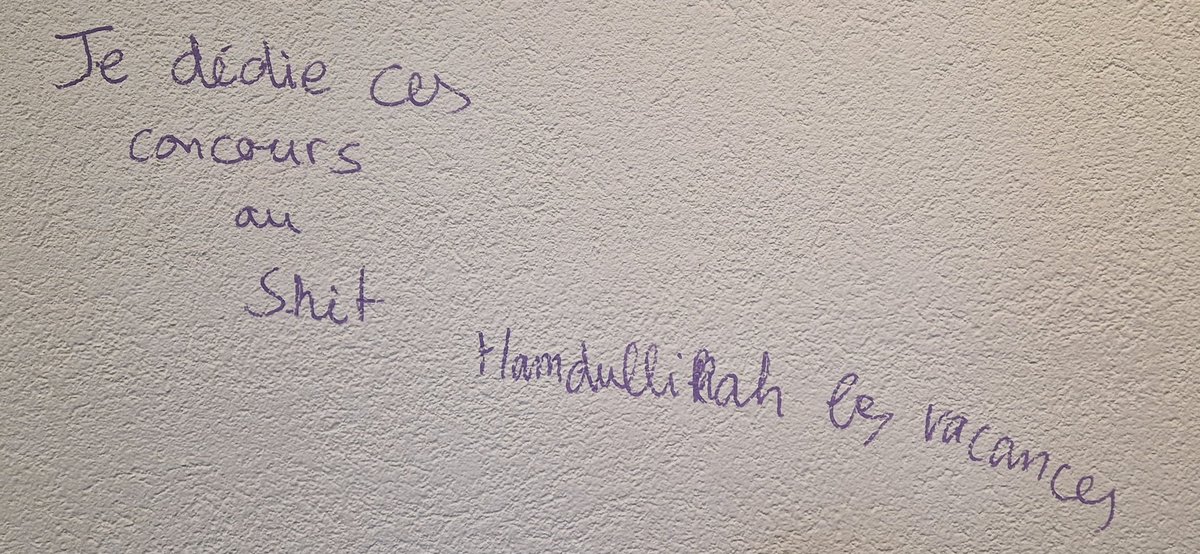 Je dédie ces
concours
au
Shit
Hamdullilah les vacances